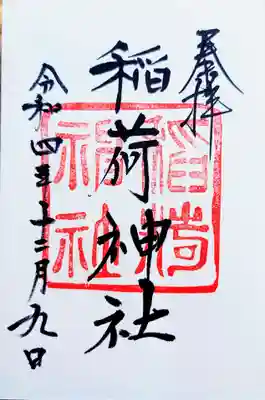 奉拝
稲荷神社
稲荷神社
令和四年十二月九日